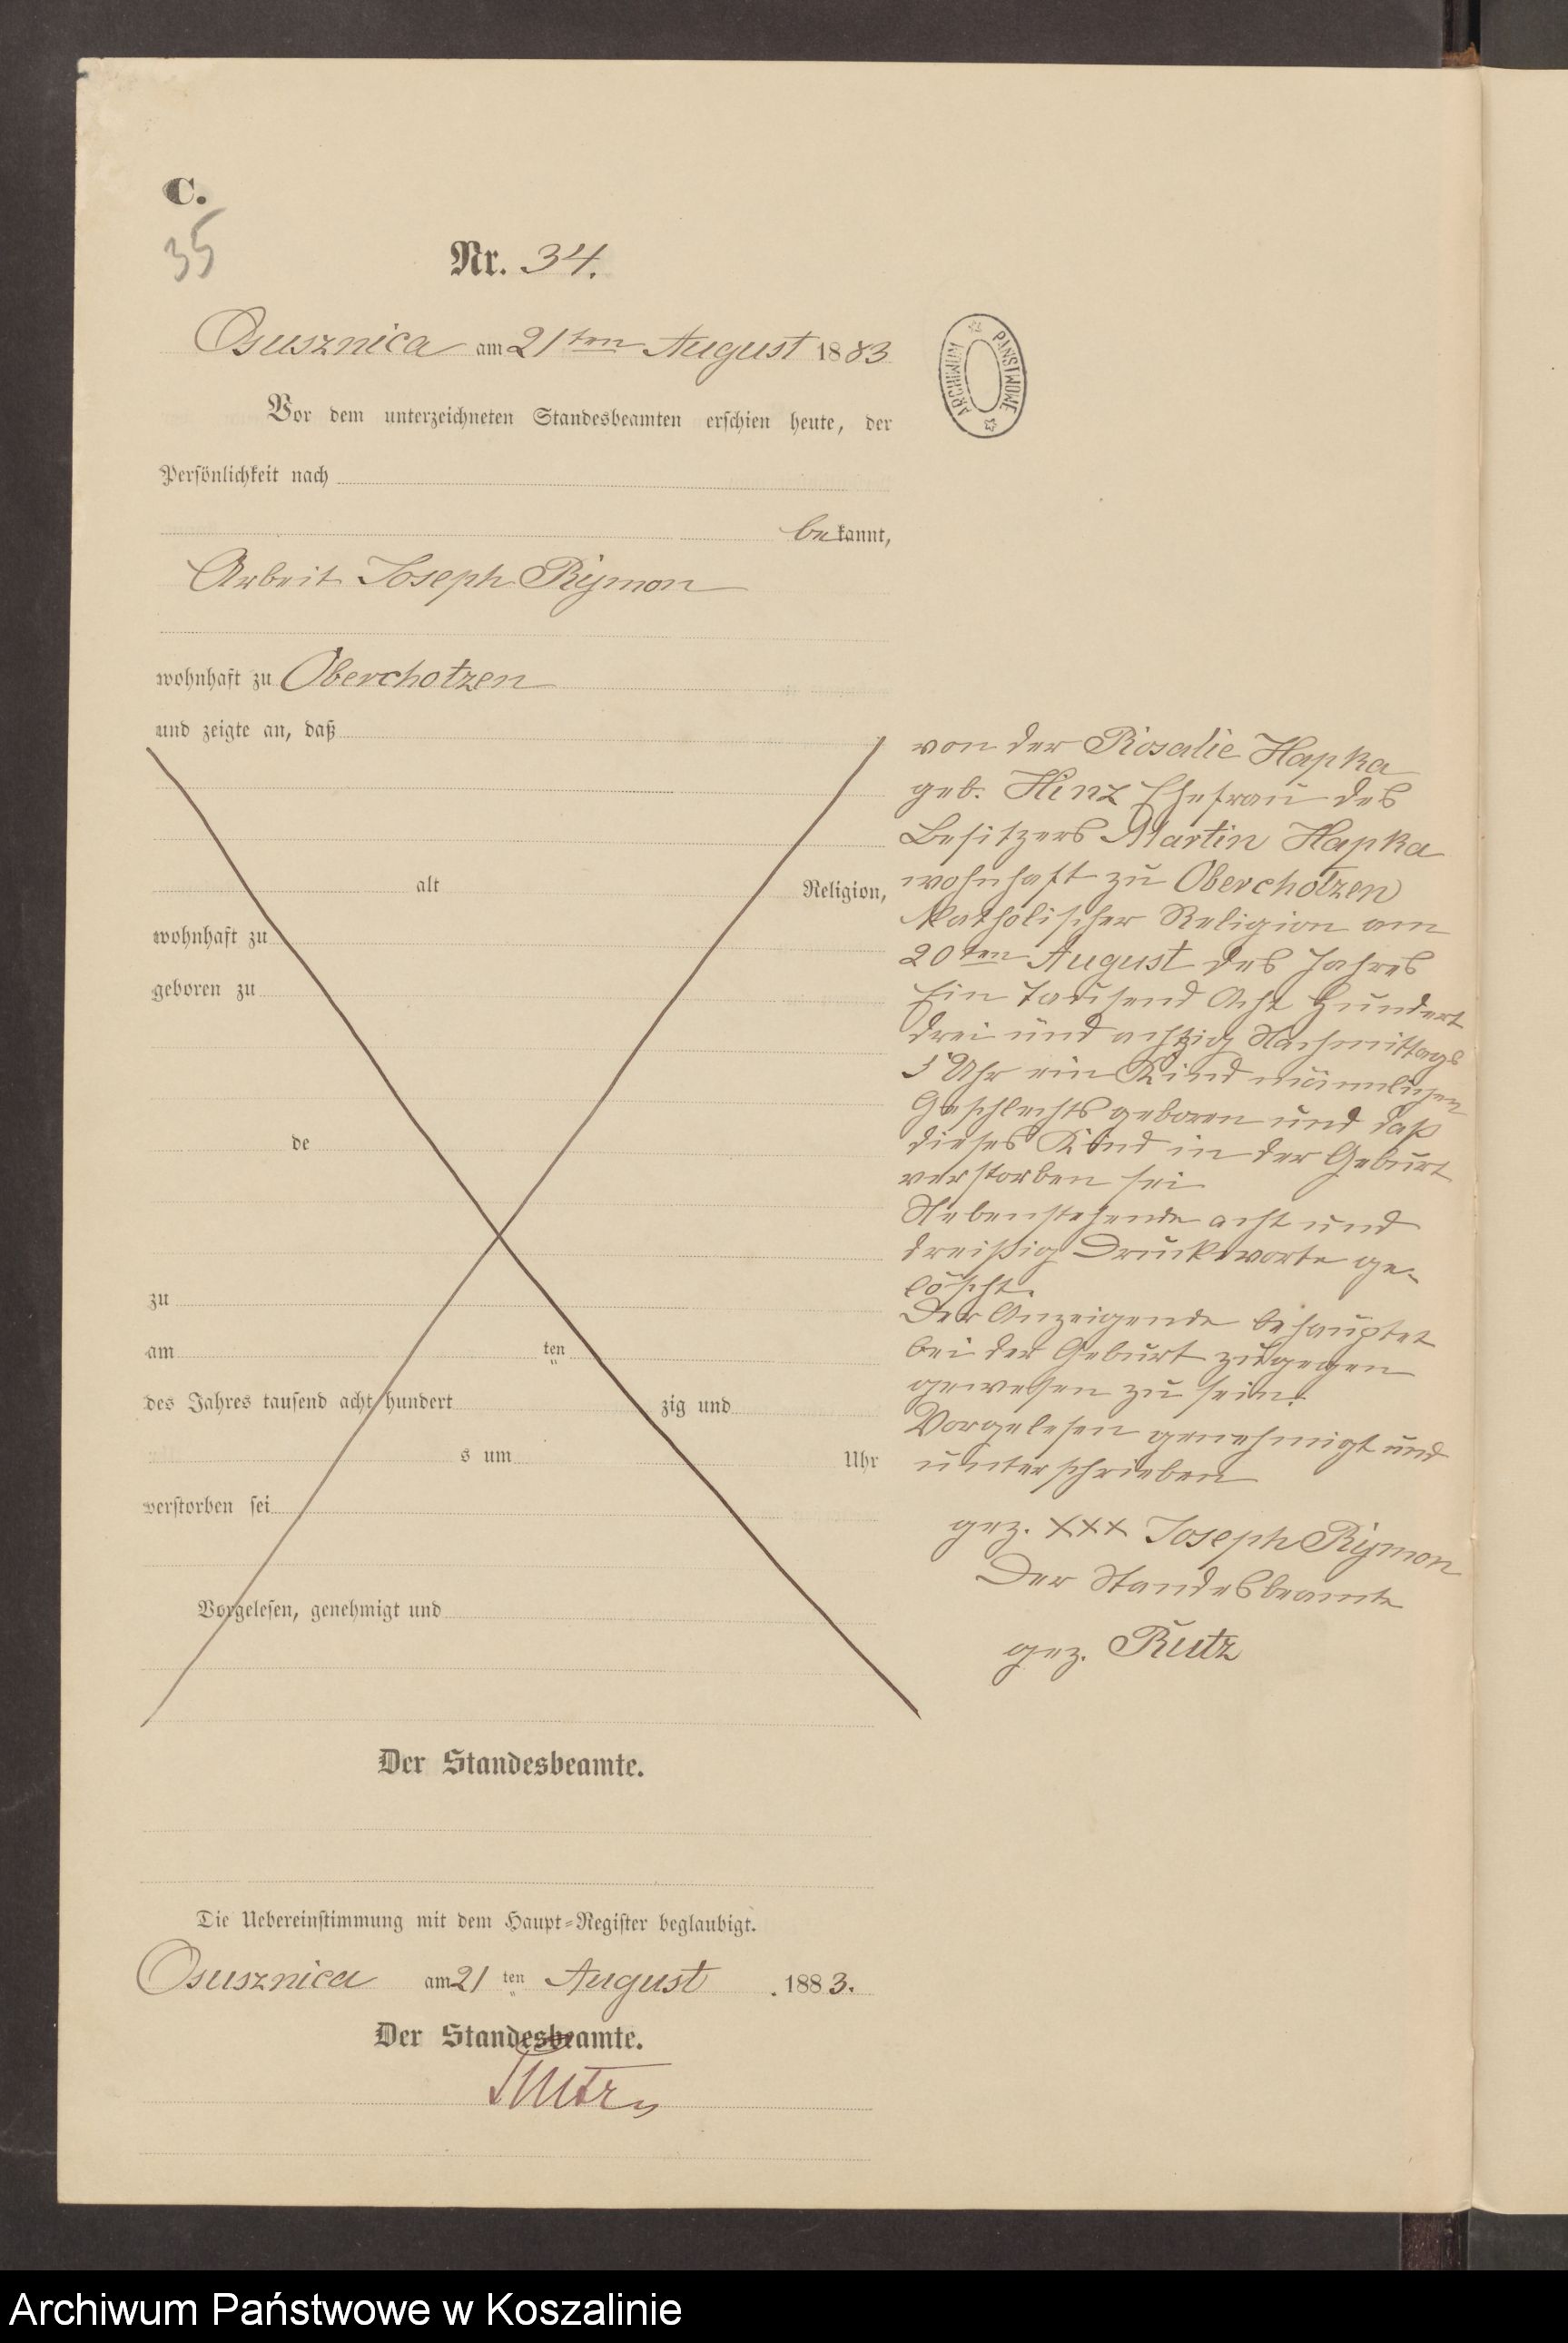 C.
35
Nr. 34.
Osusznica am 21ten August 1883
Vor dem unterzeichneten Standesbeamten erschien heute, der
Persönlichkeit nach
bekannt,
Arbeit Joseph Rymon
wohnhaft zu Oberchotzen
und zeigte an, daß
alt Religion,
wohnhaft zu
geboren zu
de
zu
am ten
des Jahres tausend acht hundert zig und
s um Uhr
verstorben sei
Vorgelesen, genehmigt und
Der Standesbeamte.
Die Uebereinstimmung mit dem Haupt-Register beglaubigt.
Osusznica am 21 ten August 1883.
Der Standesbeamte.
Rutz
ARCHIWUM PAŃSTWOWE
von der Rosalie Hapka
geb. Hinz Ehefrau des
Besitzers Martin Hapka
wohnhaft zu Oberchotzen
Katholischer Religion am
20ten August des Jahres
Ein tausend Acht Hundert
drei und achtzig Nachmittags
5 Uhr ein Kind männlichen
Geschlechts geboren und daß
dieses Kind in der Geburt
verstorben sei
Nebenstehende acht und
dreißig Druckworte ge-
löscht.
Der Anzeigende behauptet
bei der Geburt zugegen
gewesen zu sein.
Vorgelesen genehmigt und
unterschrieben
gez. XXX Joseph Rymon
Der Standesbeamte
gez. Rutz
Archiwum Państwowe w Koszalinie